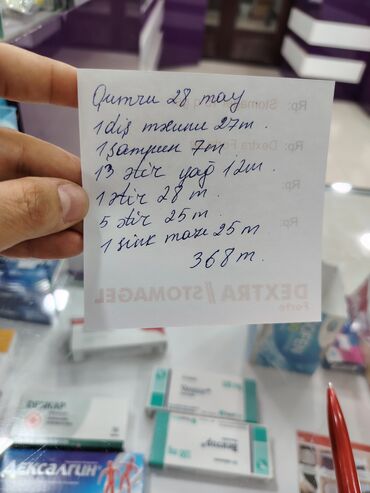 Qumru 28 may
1 diş məcunu 27m.
1 şampun 7m
13 ətir yağ 12m.
1 ətir 28 m.
5 ətir 25 m.
1 sink mazı 25 m
368 m.
Rp:
Stoma
Rp:
Dextra Fo
Rp:
DEXTRA // STOMAGEL
Forte
ДЕКСАЛГИН®